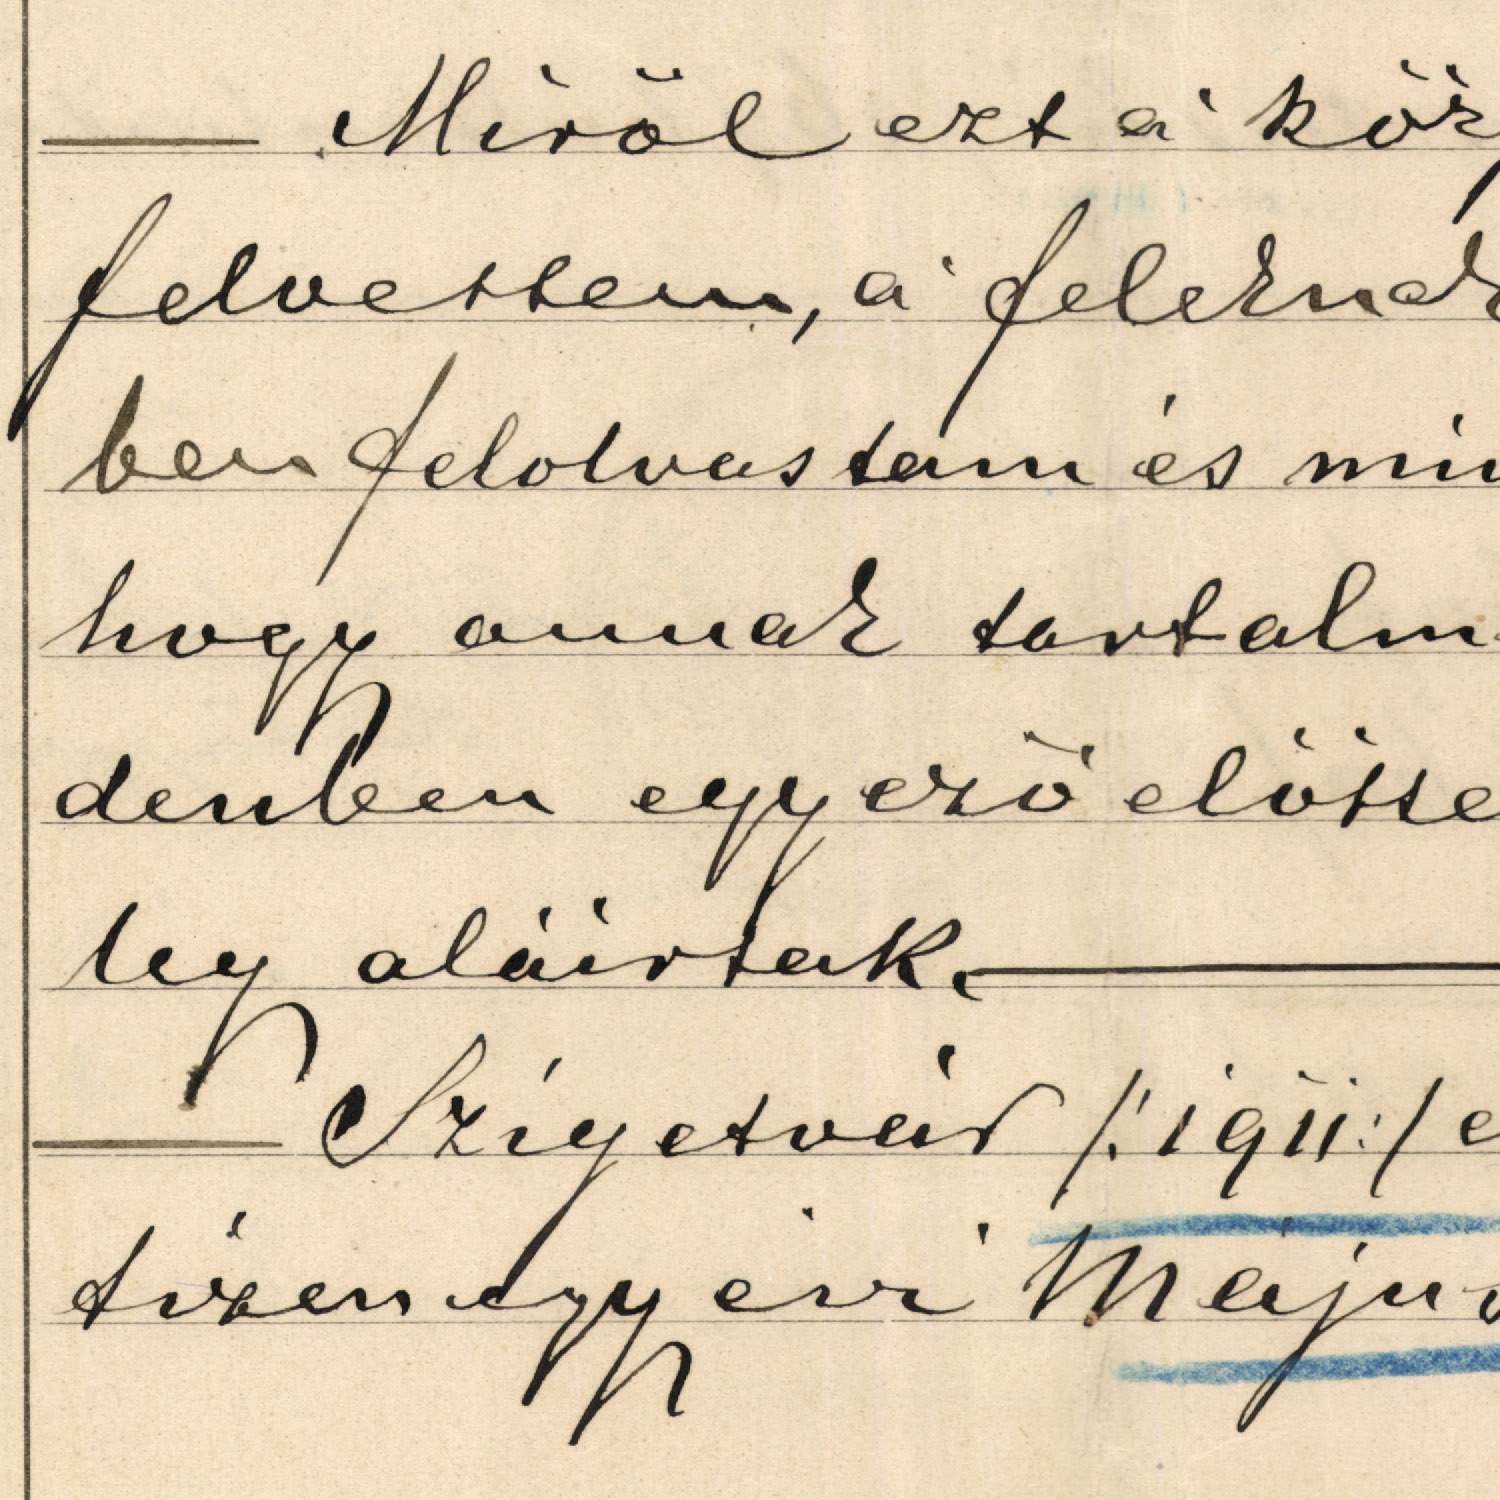 — Miröl ezt a' köz
felvettem, a' feleknek
ben felolvastam és min
hogy annak tartalm
denben egyező előtte
leg aláirtak. —
— Szigetvár /:1911:/ e
tizenegy évi Május